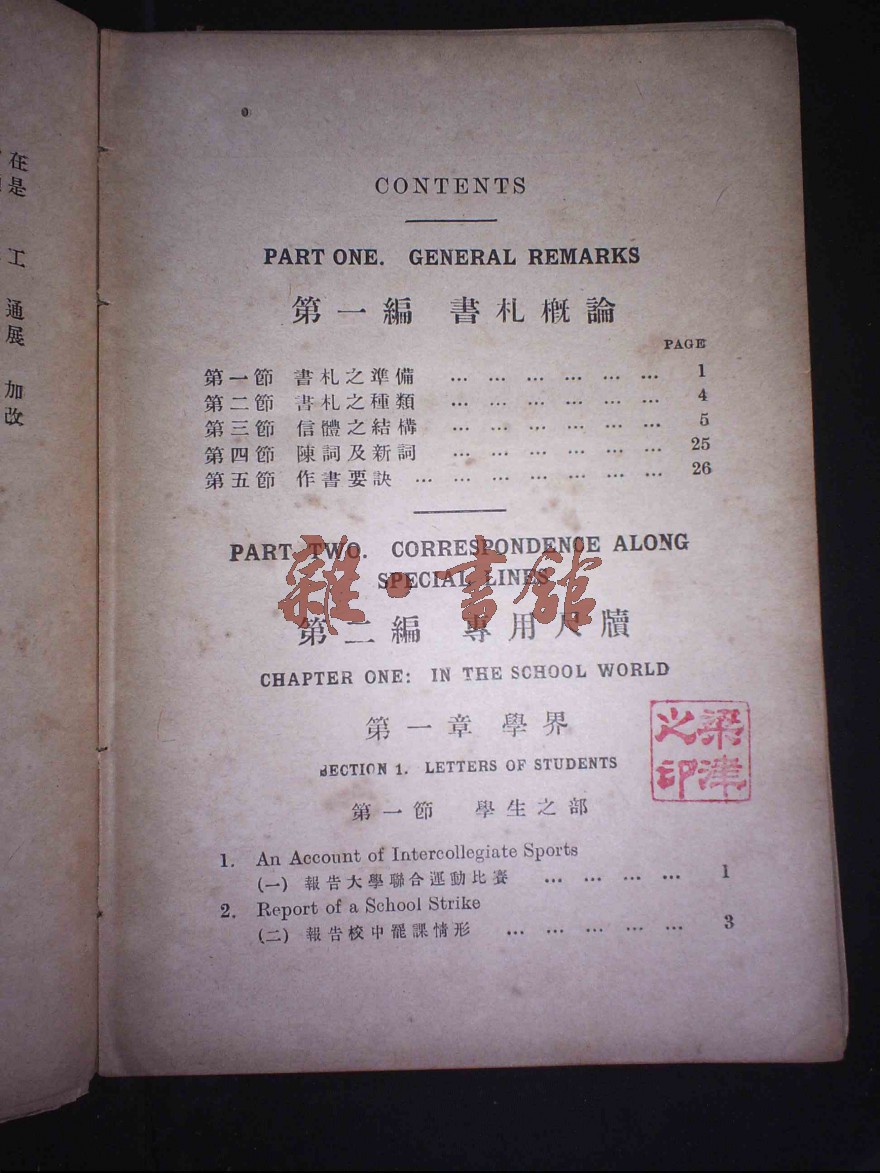 CONTENTS
PART ONE. GENERAL REMARKS
第一編 書札概論
PAGE
第一節 書札之準備 ... ... ... ... ... ... 1
第二節 書札之種類 ... ... ... ... ... ... 4
第三節 信體之結構 ... ... ... ... ... ... 5
第四節 陳詞及新詞 ... ... ... ... ... ... 25
第五節 作書要訣 ... ... ... ... ... ... ... 26
PART TWO. CORRESPONDENCE ALONG
SPECIAL LINES
雜·書館
第二編 專用尺牘
CHAPTER ONE: IN THE SCHOOL WORLD
第一章 學界
SECTION 1. LETTERS OF STUDENTS
第一節 學生之部
梁津之印
1. An Account of Intercollegiate Sports
(一) 報告大學聯合運動比賽 ... ... ... ... 1
2. Report of a School Strike
(二) 報告校中罷課情形 ... ... ... ... ... 3
在
是
工
通
展
加
改